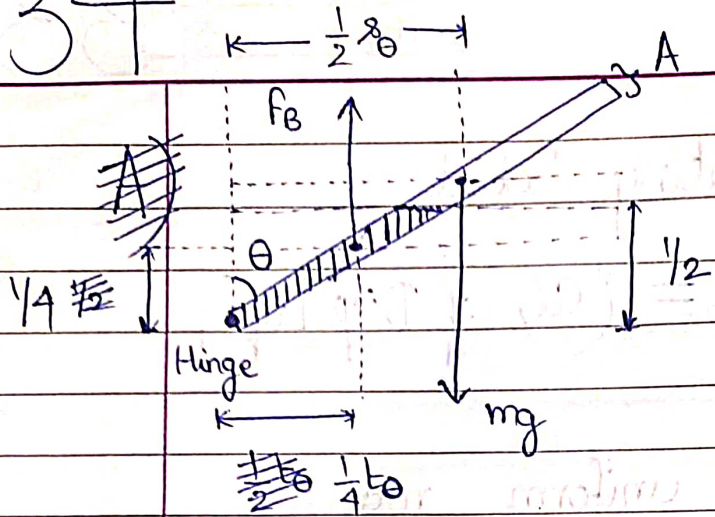 ½ sθ
A
fB
θ
1/4
1/2
Hinge
mg
¼ tθ